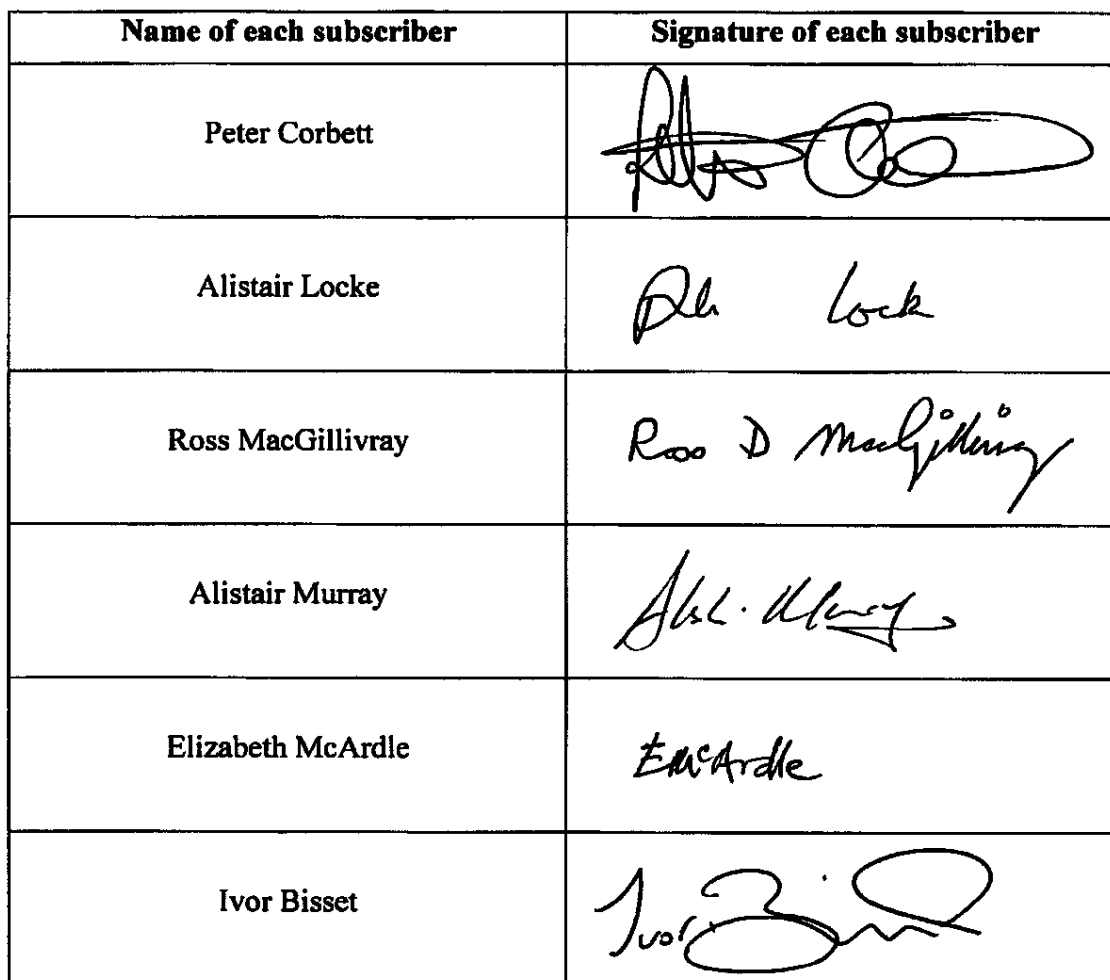 Name of each subscriber Signature of each subscriber
Peter Corbett
Alistair Locke Lock
Ross MacGillivray Ross D MacGillivray
Alistair Murray
Elizabeth McArdle EMcArdle
Ivor Bisset Ivor